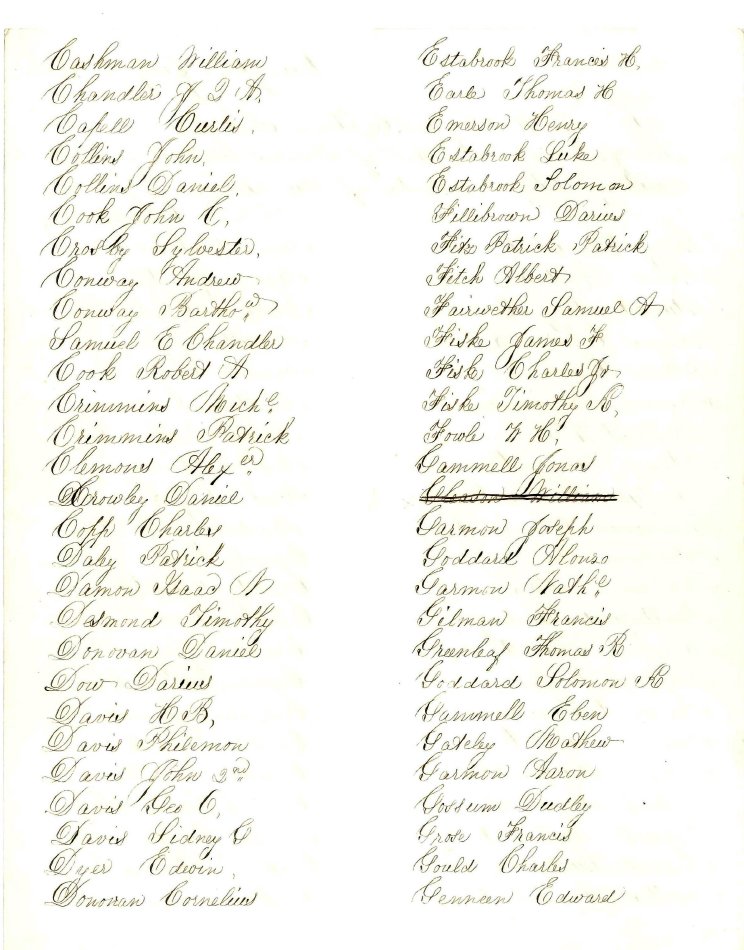 Cashman William
Chandler J Q A.
Capell Curtis.
Collins John.
Collins Daniel.
Cook John E.
Crosby Sylvester.
Conway Andrew
Conway Bartho.w
Samuel E Chandler
Cook Robert A
Crimmins Mich.l
Crimmins Patrick
Clemons Alex er
Crowley Daniel
Copp Charles
Daley Patrick
Damon Isaac N
Desmond Timothy
Donovan Daniel
Dow Darius
Davis H B.
Davis Philemon
Davis John 2nd
Davis Geo C.
Davis Sidney G
Dyer Edwin.
Donovan Cornelius
Estabrook Francis H.
Earle Thomas H
Emerson Henry
Estabrook Luke
Estabrook Solomon
Fillibrown Darius
Fitz Patrick Patrick
Fitch Albert
Fairwether Samuel A
Fiske James F
Fisk Charles Jr
Fiske Timothy K.
Fowle W H.
Gammell Jonas
William
Garmon Joseph
Goddard Alonzo
Garmon Nath.l
Gilman Francis
Greenleaf Thomas R
Goddard Solomon K
Gammell Eben
Gateley Mathew
Garmon Aaron
Gossum Dudley
Grose Francis
Gould Charles
Genneen Edward